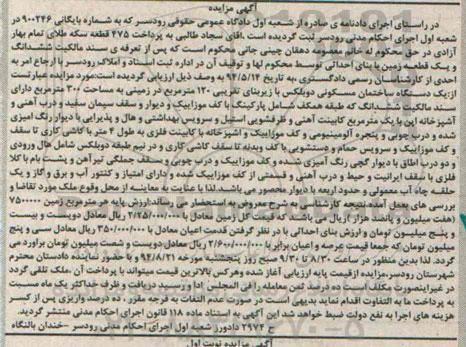 آگهی مزایده
در راستای اجرای دادنامه ی صادره از شعبه اول دادگاه عمومی حقوقی رودسر که به شماره بایگانی ۹۰۰۲۴۶ در
شعبه اول اجرای احکام مدنی رودسر ثبت گردیده است .آقای سجاد طالبی به پرداخت ۴۷۵ قطعه سکه طلای تمام بهار
آزادی در حق محکوم له خانم معصومه دهقان چینی جانی محکوم است که پس از تعرفه ی سند مالکیت ششدانگ
و یک قطعه زمین با بنای احداثی توسط محکوم لها و توقیف آن در اداره ثبت اسناد و املاک رودسر با ارجاع امر به
احدی از کارشناسان رسمی دادگستری ،به تاریخ ۹۴/۵/۱۴ به وصف ذیل ارزیابی گردیده است:مورد مزایده عبارتست
از:یک دستگاه ساختمان مسکونی دوبلکس با زیربنای تقریبی ۱۲۰ مترمربع در زمینی به مساحت ۳۰۰ مترمربع دارای
سند مالکیت ششدانگ که طبقه همکف شامل پارکینگ با کف موزاییک و دیوار و سقف سیمان سفید و درب آهنی و
آشپزخانه اپن با یک مترمربع کابینت آهنی و ظرفشویی استیل و سرویس بهداشتی و هال و پذیرایی با دیوار رنگ آمیزی
شده و درب چوبی و پنجره آلومینیومی و کف موزاییک و آشپزخانه با کابینت فلزی به طول ۴ متر با کاشی کاری تا سقف
و کف موزاییک و سرویس حمام و دستشویی با کف وبدنه تا سقف کاشی کاری و در نیم طبقه دوبلکس شامل هال ورودی
و دو درب اطاق با دیوار گچی رنگ آمیزی شده و کف موزاییک و درب چوبی و سقف جملگی تیرآهن و پشت بام با کلا
فلزی با سقف ایرانیت و حیط و درب آهنی و قسمتی از کف موزاییک شده و دارای امتیاز و کنتور آب و برق و گاز و یک
حلقه چاه آب معمولی و حدود اربعه با دیوار محصور می باشد.لذا با عنایت به معاینه از محل وقوع ملک مورد تقاضا و
بررسی های بعمل آمده نتیجه کارشناسی به شرح معروض به استحضار می رساند:ارزش پایه هر مترمربع زمین ۷۵۰۰۰۰۰
(هفت میلیون و پانصد هزار)ریال می باشد که قیمت کل زمین معادل با ۲/۲۵۰/۰۰۰/۰۰۰ ریال معادل دویست و بیست
و پنج میلیون تومان و ارزش بنای احداثی با در نظر گرفتن قدمت اعیان معادل با ۳۵۰/۰۰۰/۰۰۰ ریال معادل سی و پنج
میلیون تومان که جمعا قیمت عرصه و اعیان برابر با ۲/۶۰۰/۰۰۰/۰۰۰ ریال معادل دویست و شصت میلیون تومان براورد می
گردد. لذا بدین منظور در ساعت ۸/۳۰ تا ۹/۳۰ صبح روز پنجشنبه مورخه ۹۴/۸/۲۱ با حضور نماینده دادستان محترم
شهرستان رودسر،مزایده از قیمت پایه ارزیابی آغاز شده وهرکس بالاترین قیمت میتواند با پرداخت آن ،ملک تلقی گردد
در غیراینصورت مکلف است ده درصد ثمن معامله را فی المجلس اداء و رسید دریافت و ظرف حداکثر یک ماه مسبت
به پرداخت ها به التفاوت اقدام نماید بدیهی است در صورت عدم التفات به فرجه مقرر ، ده درصد واریزی پس از کسر
هزینه های اجرا به نفع دولت ضبط خواهد شد این آگهی به استناد ماده ۱۱۸ قانون اجرای احکام مدنی منتشر گردید.
ح ۲۹۷۴ دادورز شعبه اول اجرای احکام مدنی رودسر -خندان بالنگاه
آگهی مزایده نوبت اول